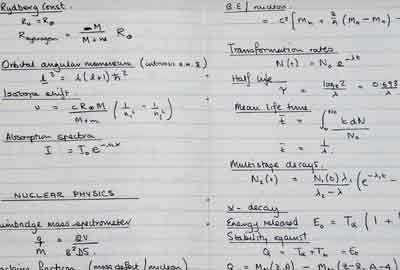 Rydberg Const.
R₀ = R∞
R_Hydrogen = M / (M + m) R∞
Orbital angular momentum (intrinsic a.m. s)
l² = l(l+1) ħ²
Isotope shift.
υ = cR∞M / (M+m) (1/n₁² - 1/n₂²)
Absorption spectra
I = I₀ e^-nx
NUCLEAR PHYSICS
Bainbridge mass spectrometer
q/m = 2V / B²
(mass defect / nucleon)
B.E / nucleon
= c² [Mn + Z/A (MH - Mn) -
Transformation rates
N(t) = N₀ e^-λt
Half life
τ = logₑ2 / λ = 0.693 / λ
Mean life time
t̄ = ∫₀^N₀ t dN / N₀
t̄ = 1/λ
Multistage decays.
N₂(t) = N₁(0) λ₁ / (λ₂ - λ₁) (e^-λ₁t -
α- decay
Energy released E₀ = Tα (1 +
Stability against
Q = Tα + Tb = E₀
Q = (Z, A) - (Z-2, A-4)